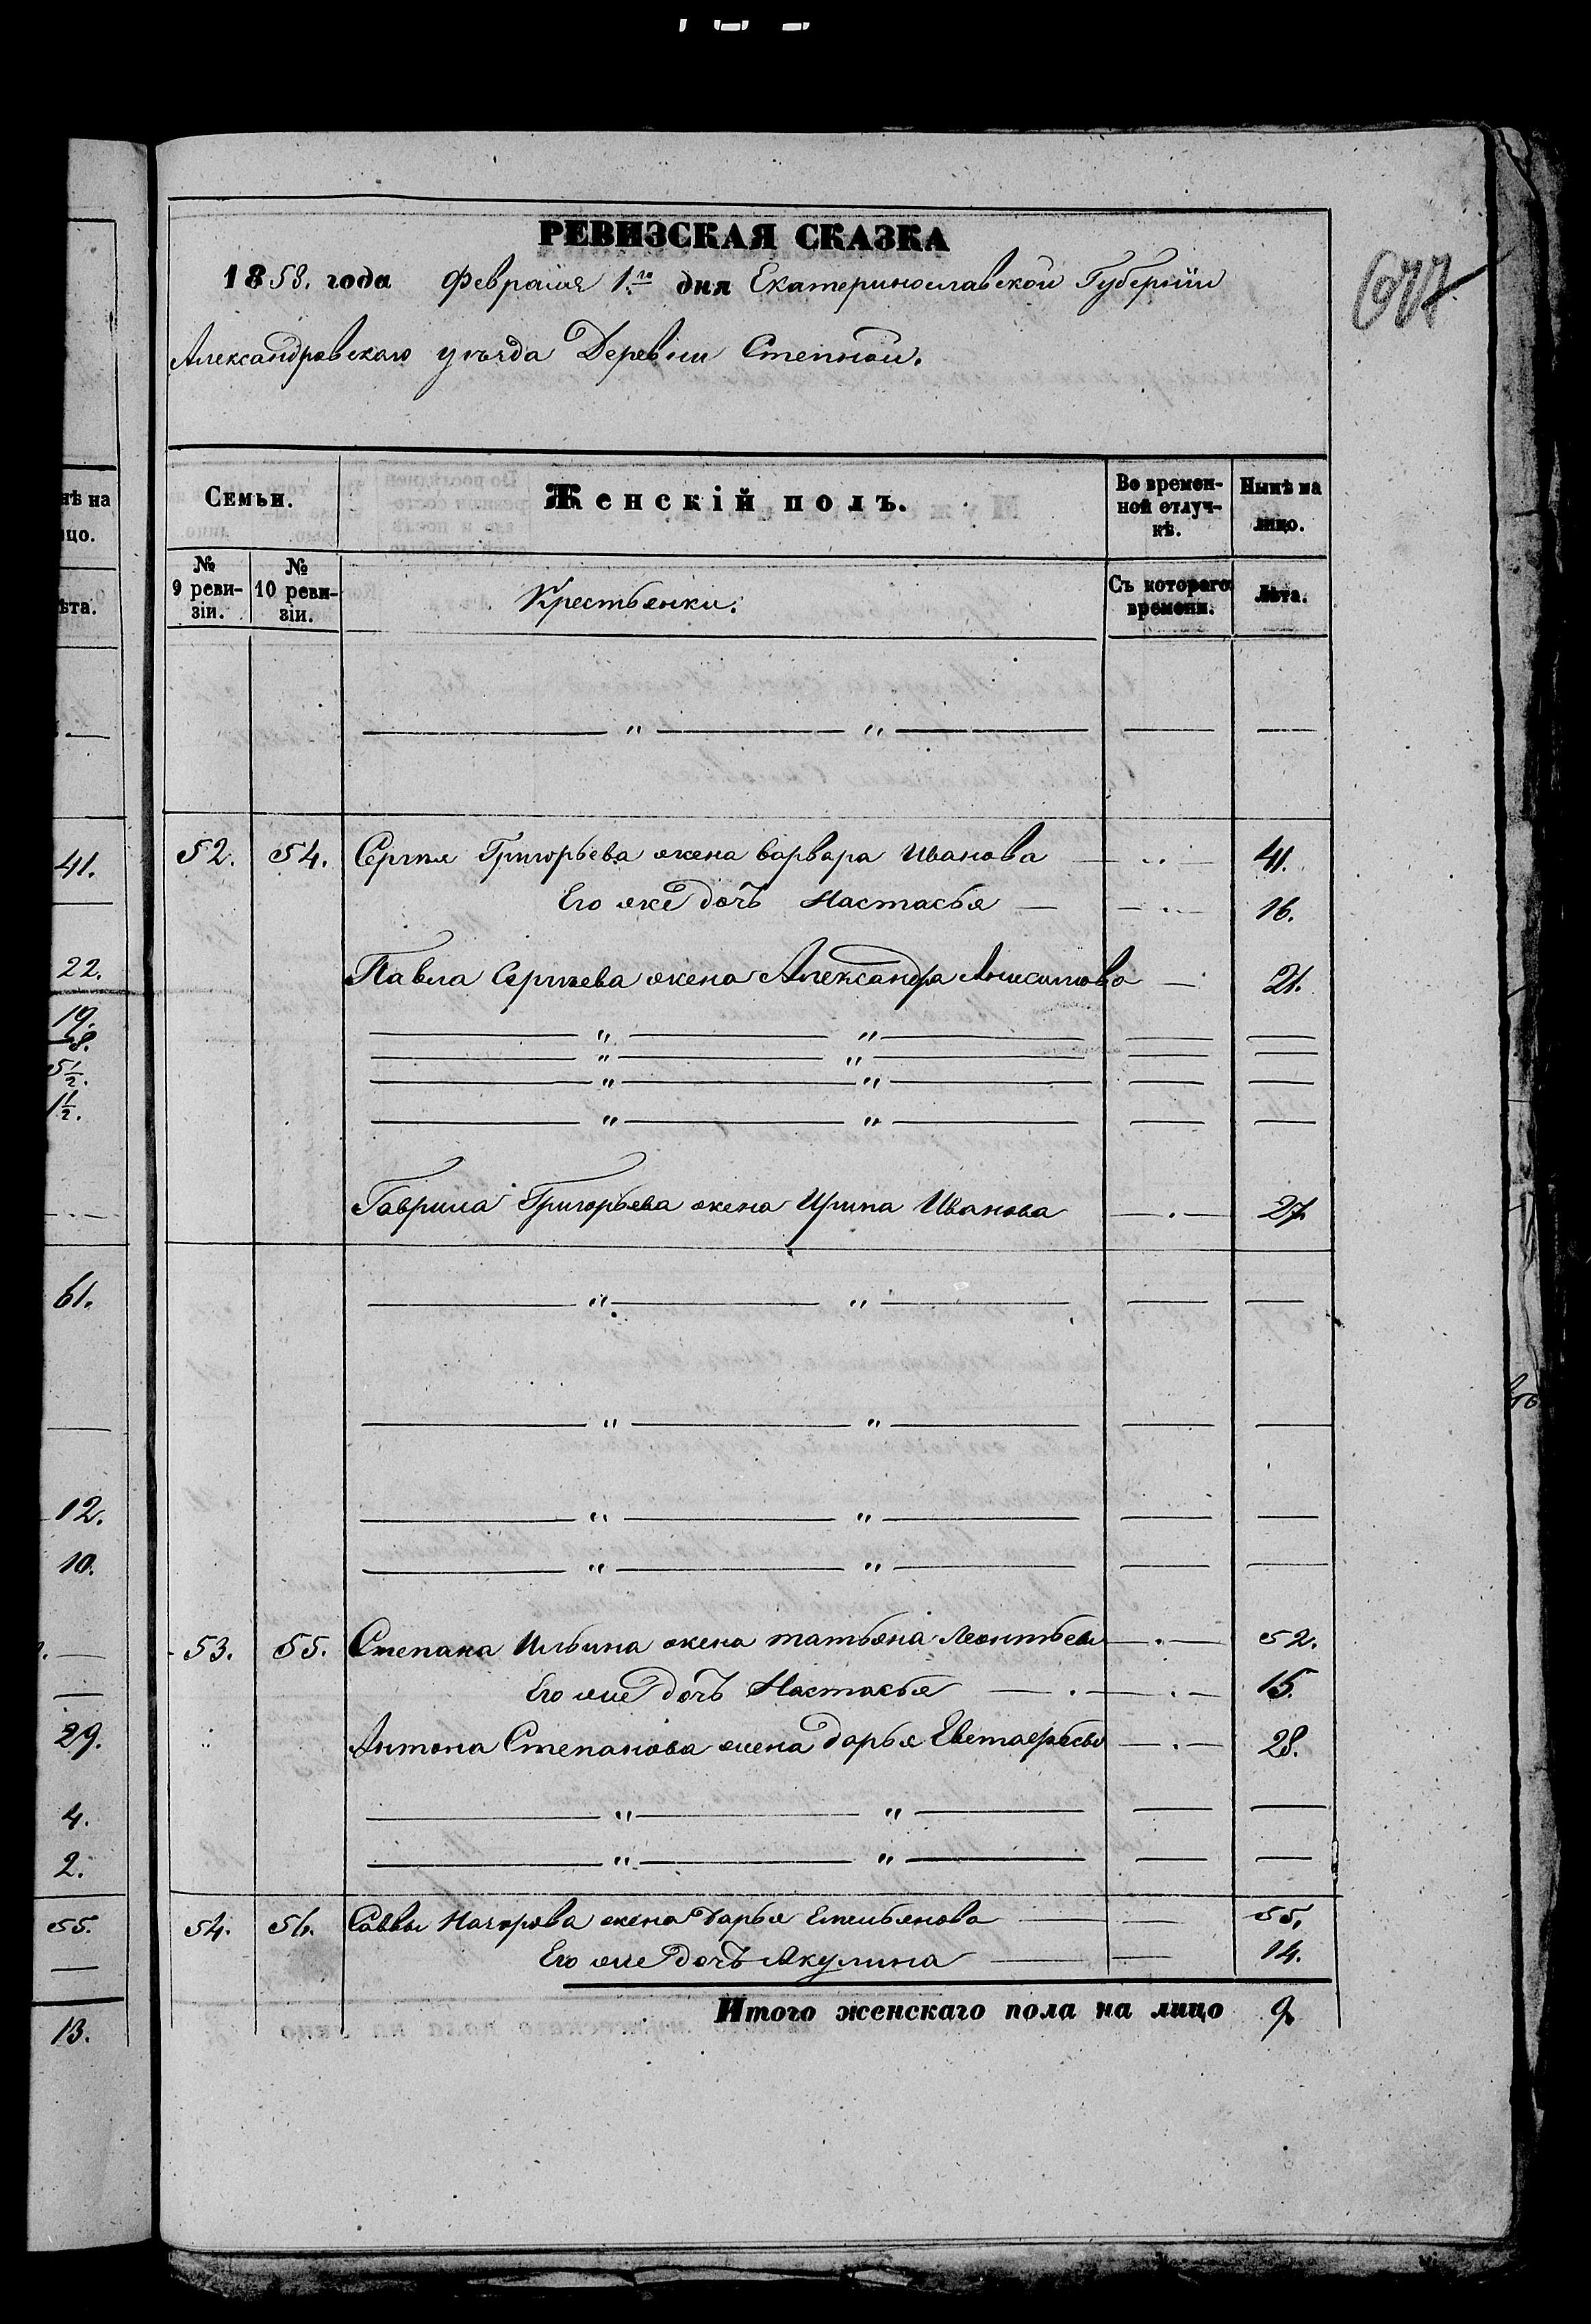 нѣ на
цо.
ѣта.
41.
22.
19.
8.
5½.
1½.
61.
12.
10.
29.
4.
2.
55.
13.
РЕВИЗСКАЯ СКАЗКА
1858. года Февраля 1.го дня Екатеринославской Губерніи
Александровскаго уѣзда Деревни Степной.
Семьи. Женскій полъ. Во времен- Нынѣ на
ной отлуч- лицо.
кѣ.
№ № Съ котораго Лѣта.
9 реви- 10 реви- Крестьянки. времени.
зіи. зіи.
52. 54. Сергія Григорьева жена Варвара Иванова 41.
Его же дочь Настасья 16.
Павла Сергіева жена Александра Анисимова 21.
Гаврила Григорьева жена Ирина Иванова 27.
53. 55. Степана Ильина жена Татьяна Леонтьева 52.
Его же дочь Настасья 15.
Антона Степанова жена Дарья 28.
54. 56. Саввы жена Дарья Емельянова 55.
Его же дочь Акулина 14.
Итого женскаго пола на лицо 9.
677